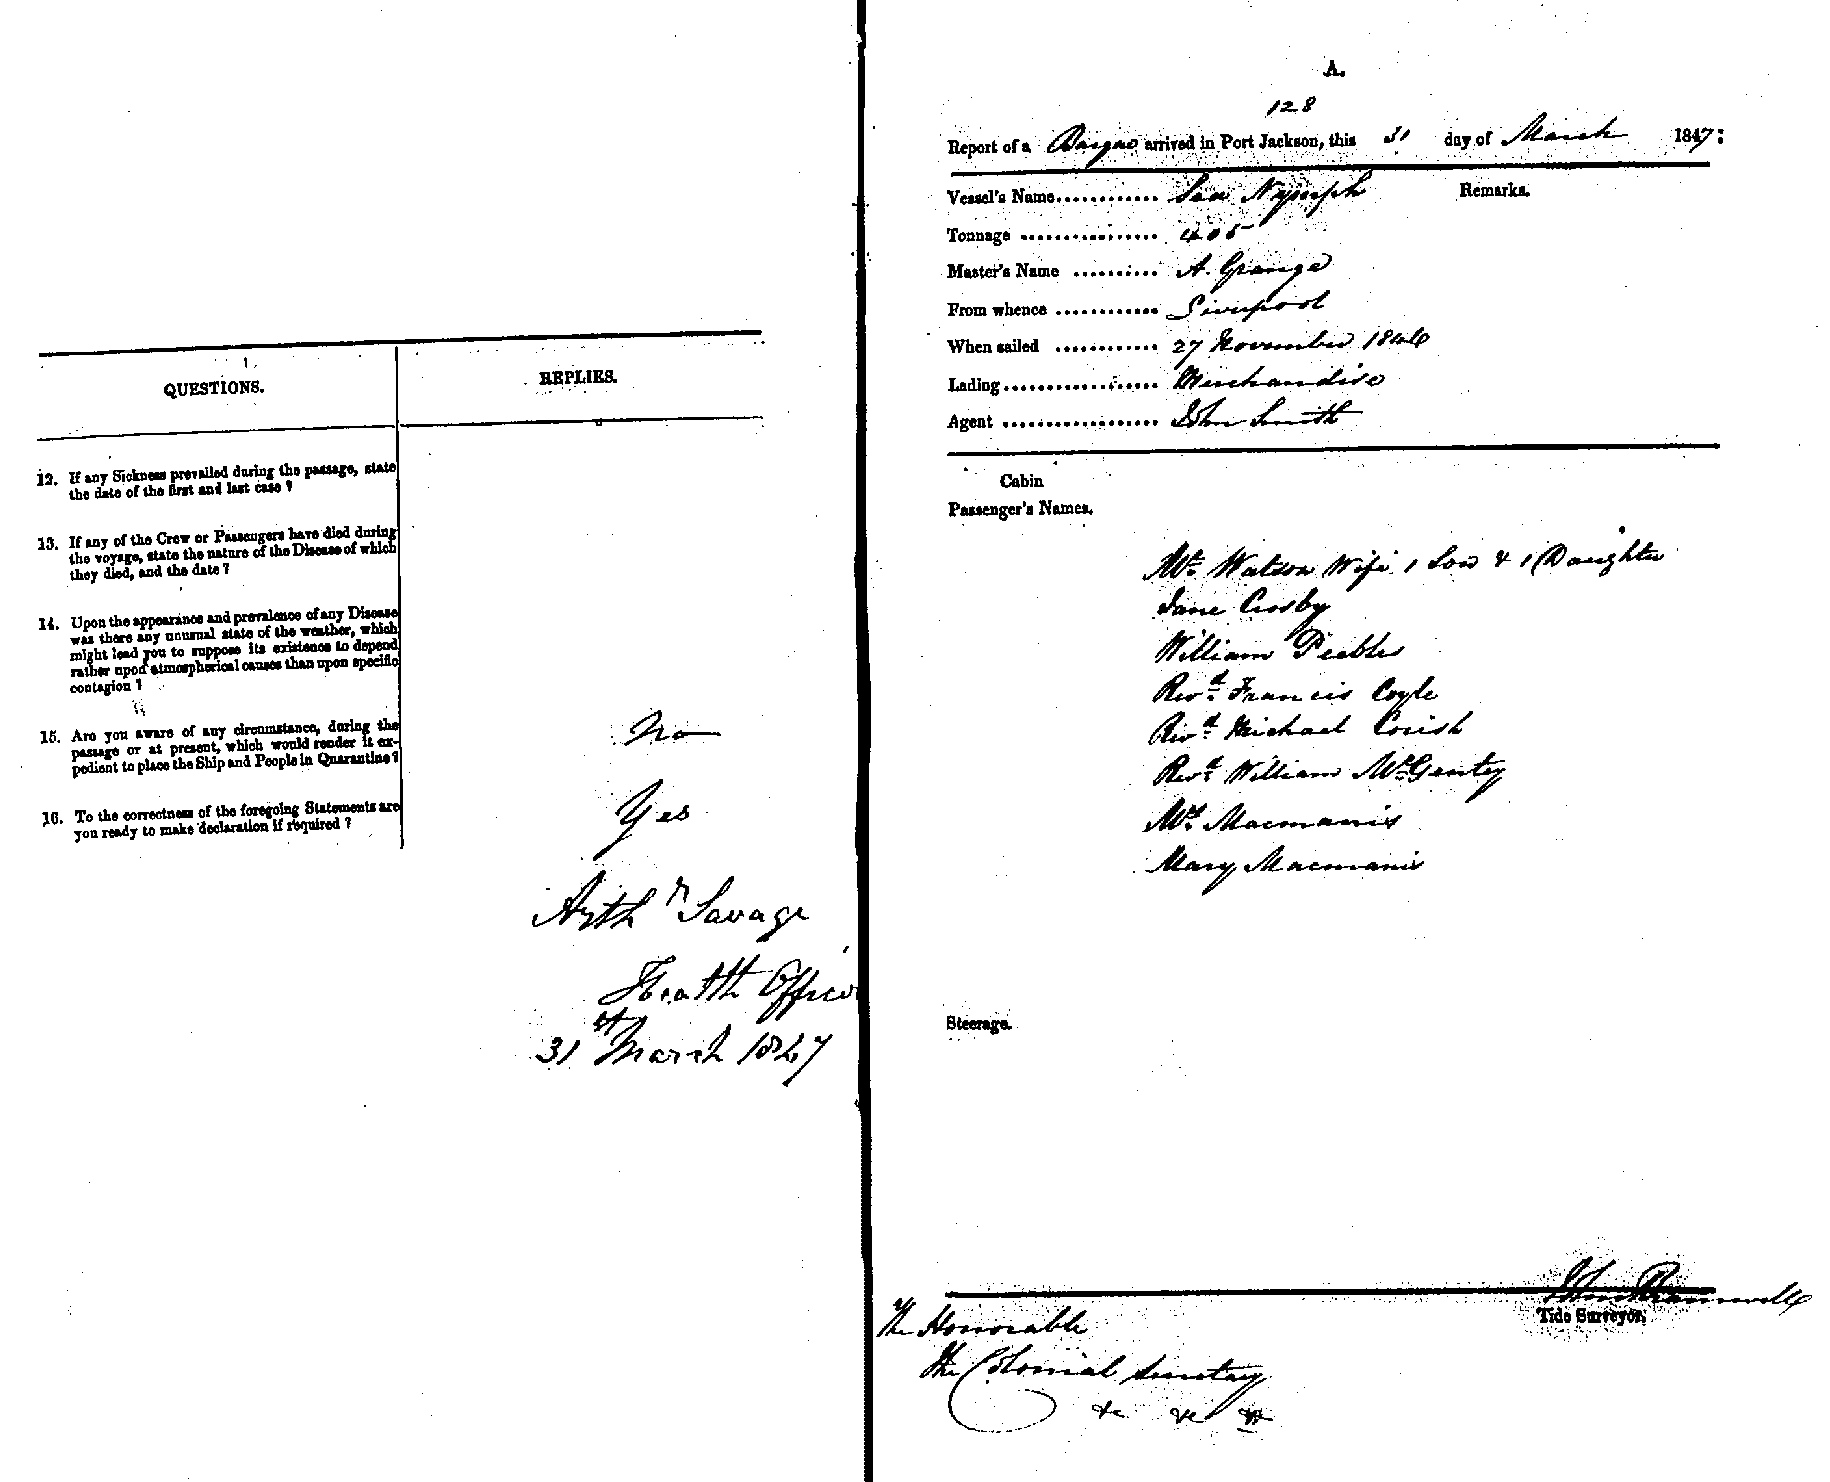 QUESTIONS.
REPLIES.
12. If any Sickness prevailed during the passage, state
the date of the first and last case ?
13. If any of the Crew or Passengers have died during
the voyage, state the nature of the Disease of which
they died, and the date ?
14. Upon the appearance and prevalence of any Disease
was there any unusual state of the weather, which
might lead you to suppose its existence to depend
rather upon atmospherical causes than upon specific
contagion ?
15. Are you aware of any circumstance, during the
passage or at present, which would render it ex-
pedient to place the Ship and People in Quarantine ?
No
16. To the correctness of the foregoing Statements are
you ready to make declaration if required ?
Yes
Arthr Savage
Health Officer
31st March 1847
A.
128
Report of a Barque arrived in Port Jackson, this 31 day of March 1847:
Vessel's Name............ Sea Nymph
Remarks.
Tonnage ................ 405
Master's Name .......... A. Grange
From whence ............ Liverpool
When sailed ............ 27 November 1846
Lading.................. Merchandise
Agent .................. John Smith
Cabin
Passenger's Names.
Mr. Watson Wife 1 Son & 1 Daughter
Jane Crosby
William Peebles
Revd. Francis Coyle
Revd. Michael Corish
Revd. William McGinty
Macmanis
Mary Macmanis
Steerage.
John Bramwell
Tide Surveyor.
The Honorable
The Colonial Secretary
&c &c &c